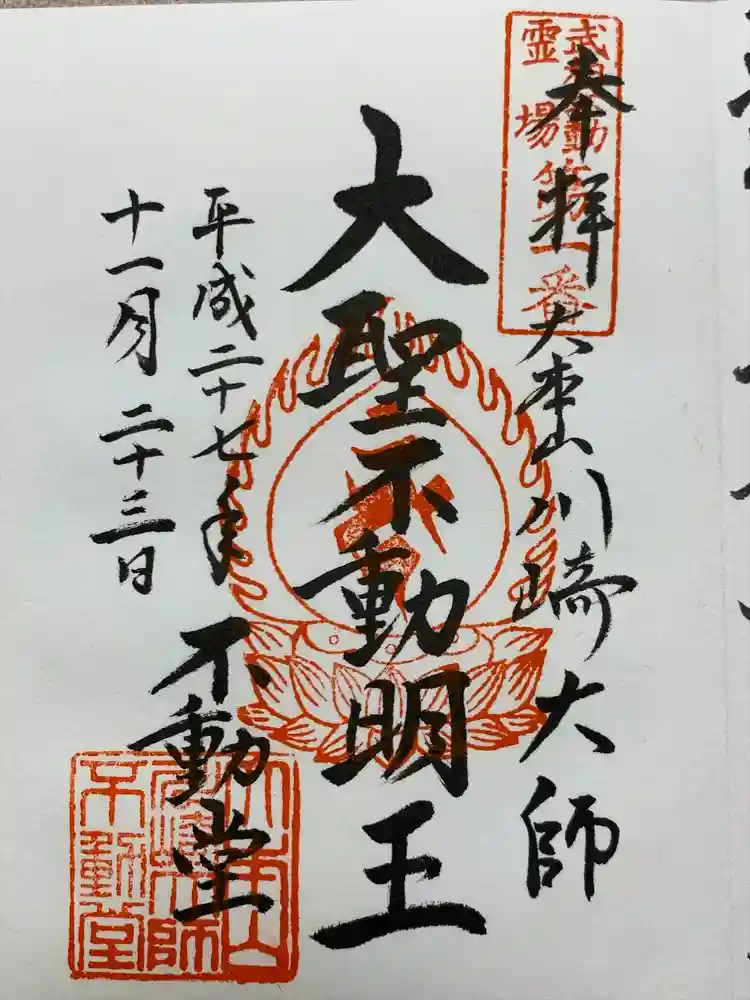 奉拝
武相不動
霊場第一番
大本山川崎大師
大聖不動明王
平成二十七年
十一月二十三日
不動堂
大本山
川崎大師
不動堂